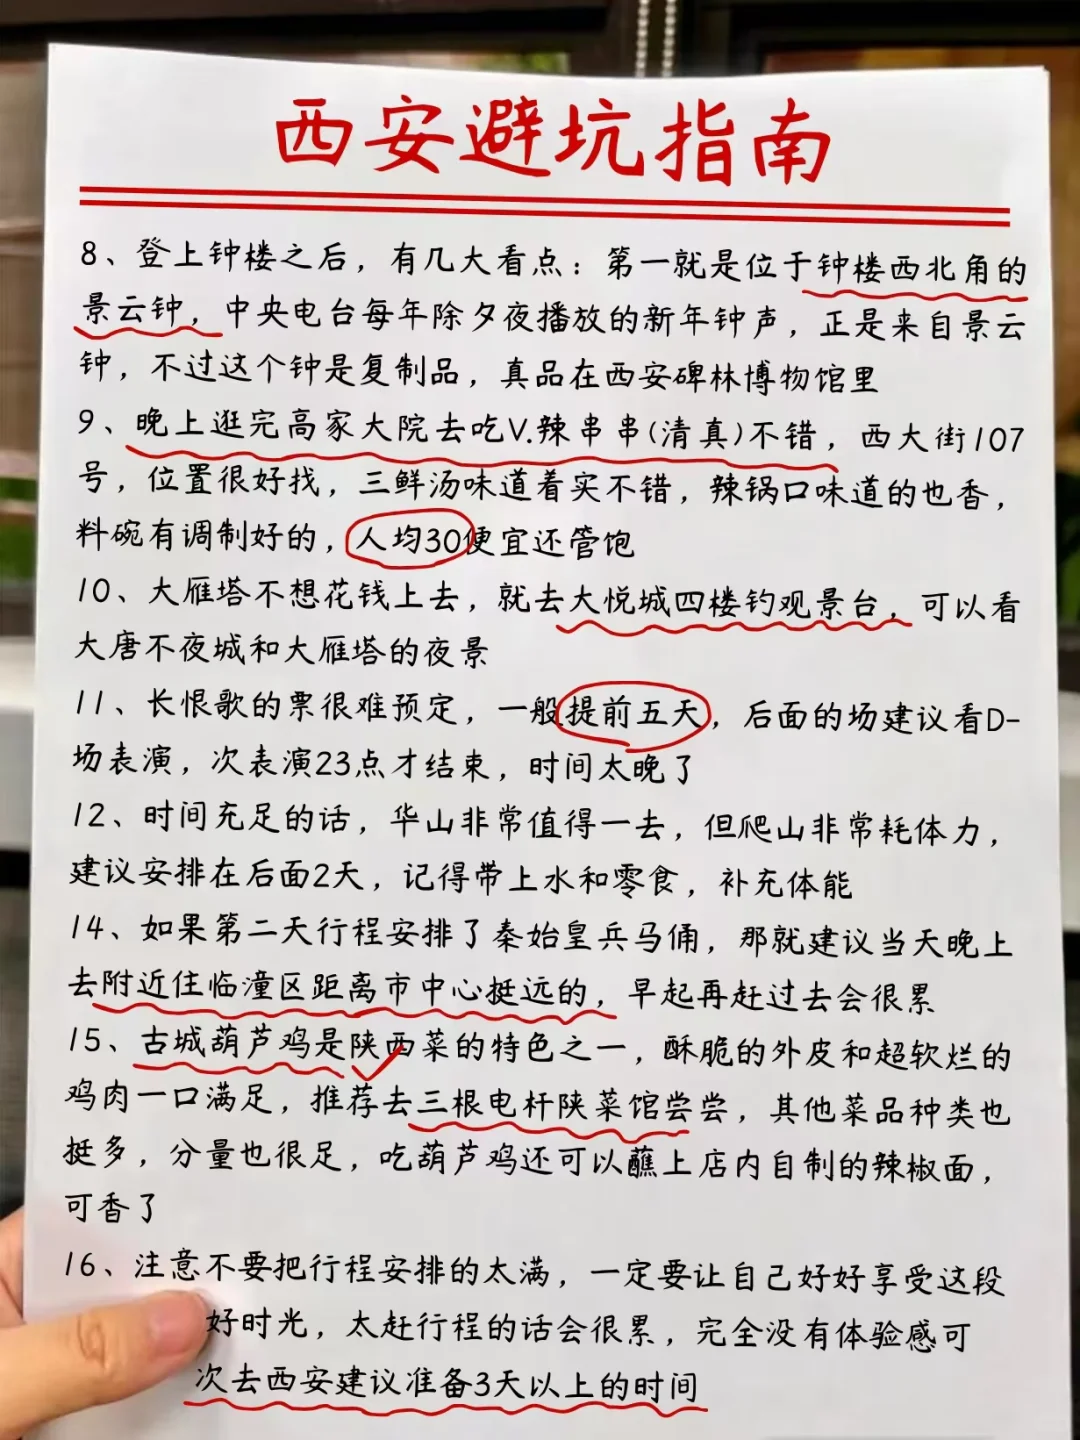 西安避坑指南
8、登上钟楼之后，有几大看点：第一就是位于钟楼西北角的
景云钟，中央电台每年除夕夜播放的新年钟声，正是来自景云
钟，不过这个钟是复制品，真品在西安碑林博物馆里
9、晚上逛完高家大院去吃V.辣串串(清真)不错，西大街107
号，位置很好找，三鲜汤味道着实不错，辣锅口味道的也香，
料碗有调制好的，人均30便宜还管饱
10、大雁塔不想花钱上去，就去大悦城四楼钓观景台，可以看
大唐不夜城和大雁塔的夜景
11、长恨歌的票很难预定，一般提前五天，后面的场建议看D-
场表演，次表演23点才结束，时间太晚了
12、时间充足的话，华山非常值得一去，但爬山非常耗体力，
建议安排在后面2天，记得带上水和零食，补充体能
14、如果第二天行程安排了秦始皇兵马俑，那就建议当天晚上
去附近住临潼区距离市中心挺远的，早起再赶过去会很累
15、古城葫芦鸡是陕西菜的特色之一，酥脆的外皮和超软烂的
鸡肉一口满足，推荐去三根电杆陕菜馆尝尝，其他菜品种类也
挺多，分量也很足，吃葫芦鸡还可以蘸上店内自制的辣椒面，
可香了
16、注意不要把行程安排的太满，一定要让自己好好享受这段
好时光，太赶行程的话会很累，完全没有体验感可
次去西安建议准备3天以上的时间